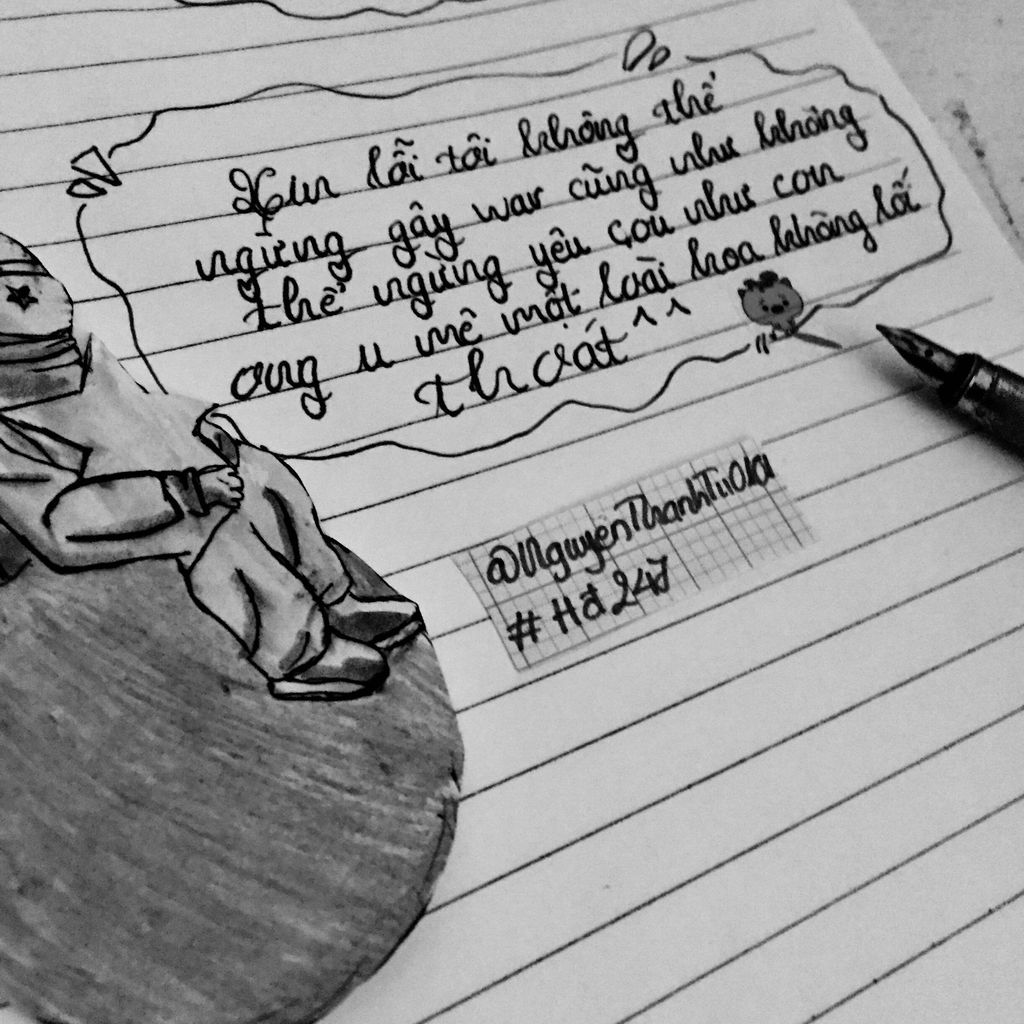 Xin lỗi tôi không thể
ngừng gây war cũng như không
thể ngừng yêu cậu như con
ong u mê một loài hoa không lối
thoát ^^
@NguyễnThanhTú01a
#Hđ247